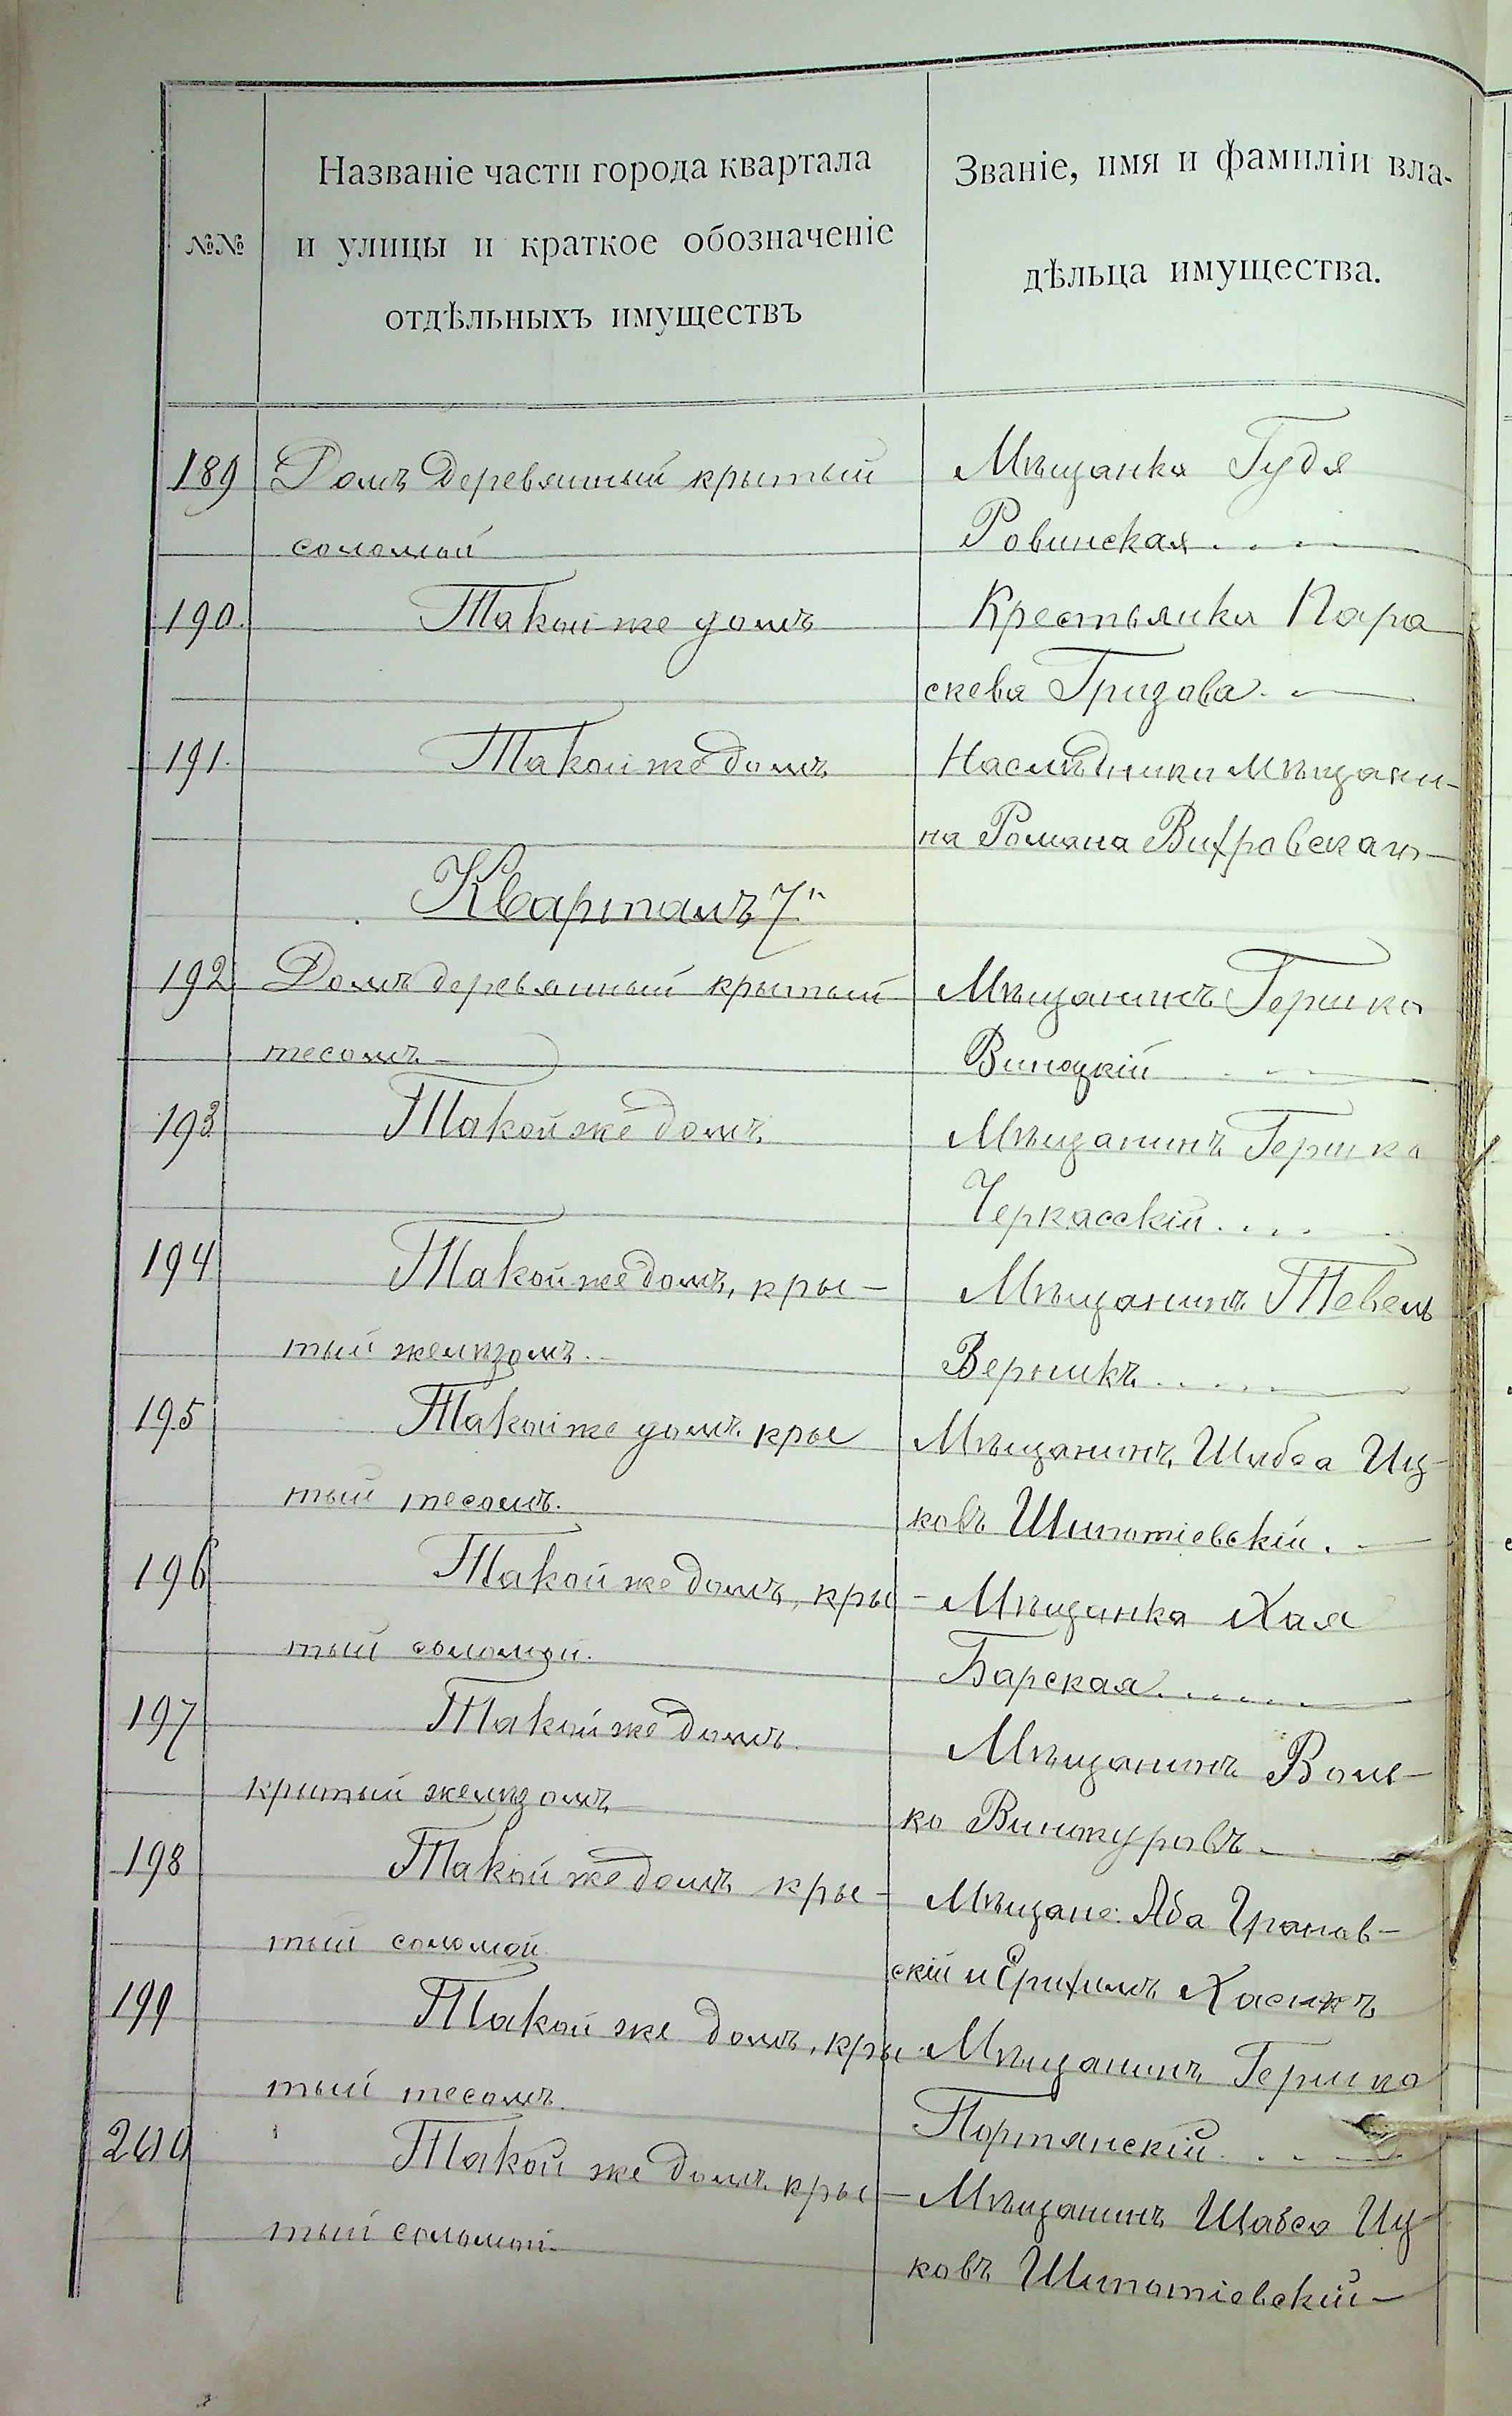 №№
Названіе части города квартала
и улицы и краткое обозначеніе
отдѣльныхъ имуществъ
Званіе, имя и фамиліи вла-
дѣльца имущества.
189 Домъ деревянный крытый
соломой
Мѣщанка Гудя
Ровинская
190. Такой же домъ
Крестьянка Пара
скева Гридова
191. Такой же домъ
Наслѣдники мѣщани-
на Романа
Кварталъ 7й
192. Домъ деревянный крытый
тесомъ
Мѣщанинъ Гершко
Виноцкій
193 Такой же домъ
Мѣщанинъ Гершко
Черкасскій
194 Такой же домъ, кры-
тый желѣзомъ.
Мѣщанинъ Тевель
195 Такой же домъ кры
тый тесомъ.
Мѣщанинъ Шабса Иц-
ковъ Шипотіевскій.
196 Такой же домъ, кры-
тый соломой.
Мѣщанка Хая
Барская
197 Такой же домъ
крытый желѣзомъ
Мѣщанинъ Воль-
ко Винокуровъ
198 Такой же домъ кры-
тый соломой
Мѣщане: Аба Гранов-
скій и Хасинъ
199 Такой же домъ, кры
тый тесомъ.
Мѣщанинъ Гершко
Портянскій
200 Такой же домъ кры-
тый соломой.
Мѣщанинъ Шабса Иц-
ковъ Шипотіевскій